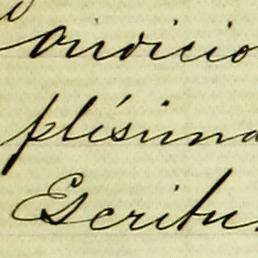 ondicio
plésima
Escritu